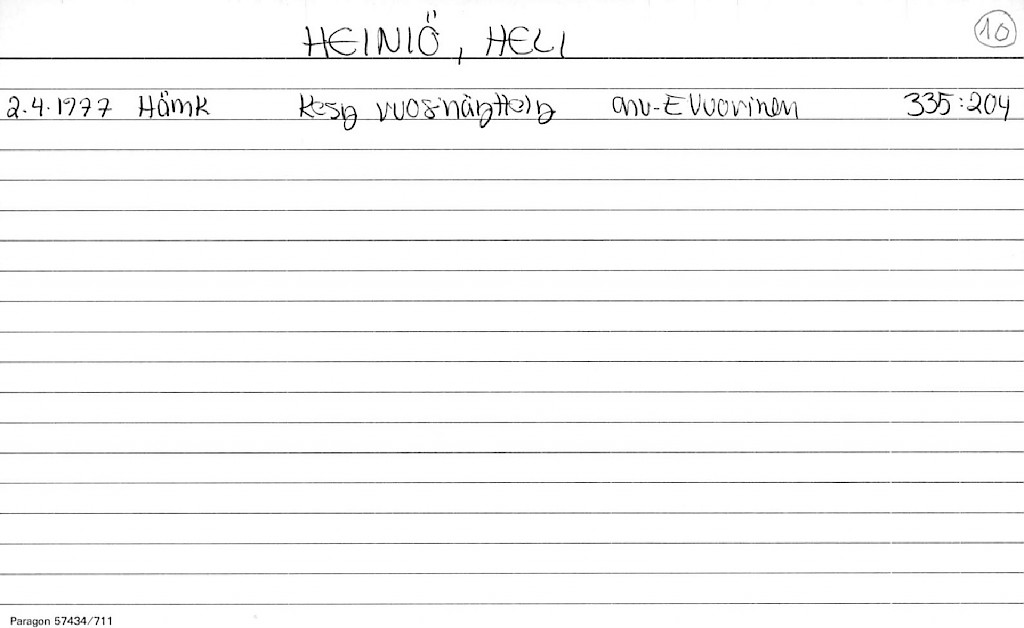 HEINIÖ, HELI
10
2.4.1977 Hämk Kesy vuos.näyttely anu-E Vuorinen 335:204
Paragon 57434/711